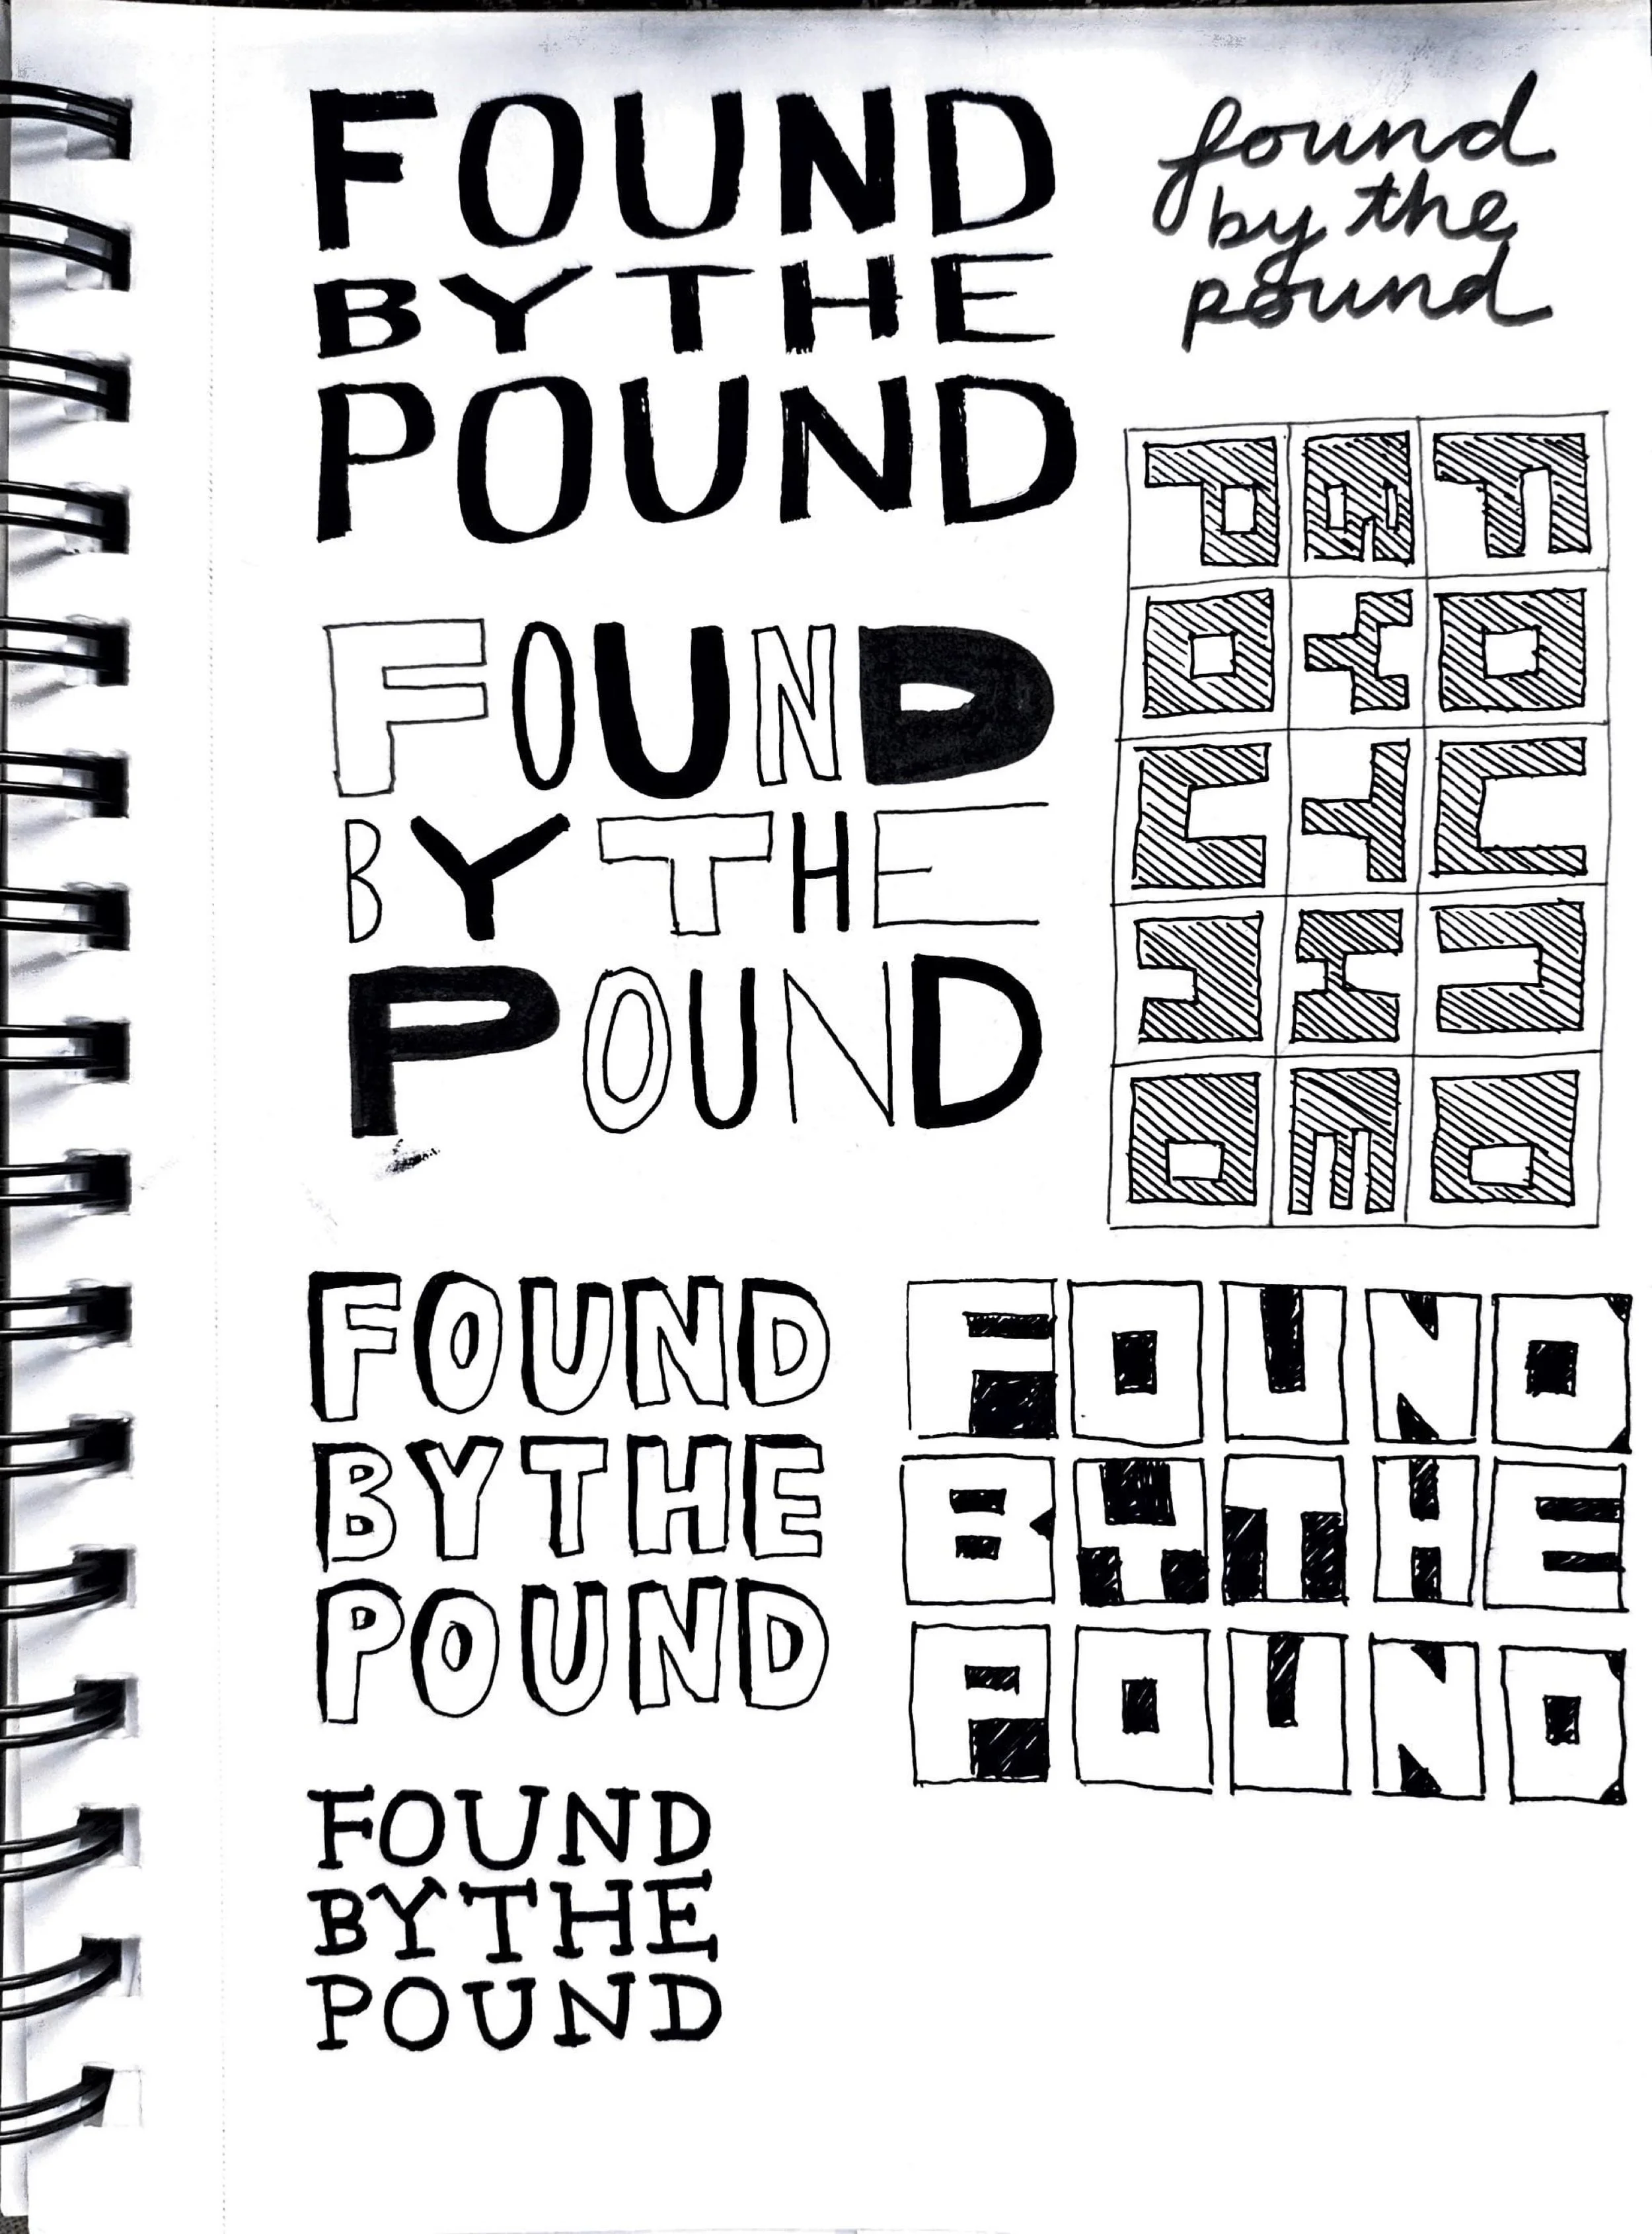 FOUND
BY THE
POUND
found
by the
pound
FOUND
BY THE
POUND
FOUND
BYTHE
POUND
FOUND
BYTHE
POUND
FOUND
BYTHE
POUND
FOUND
BYTHE
POUND